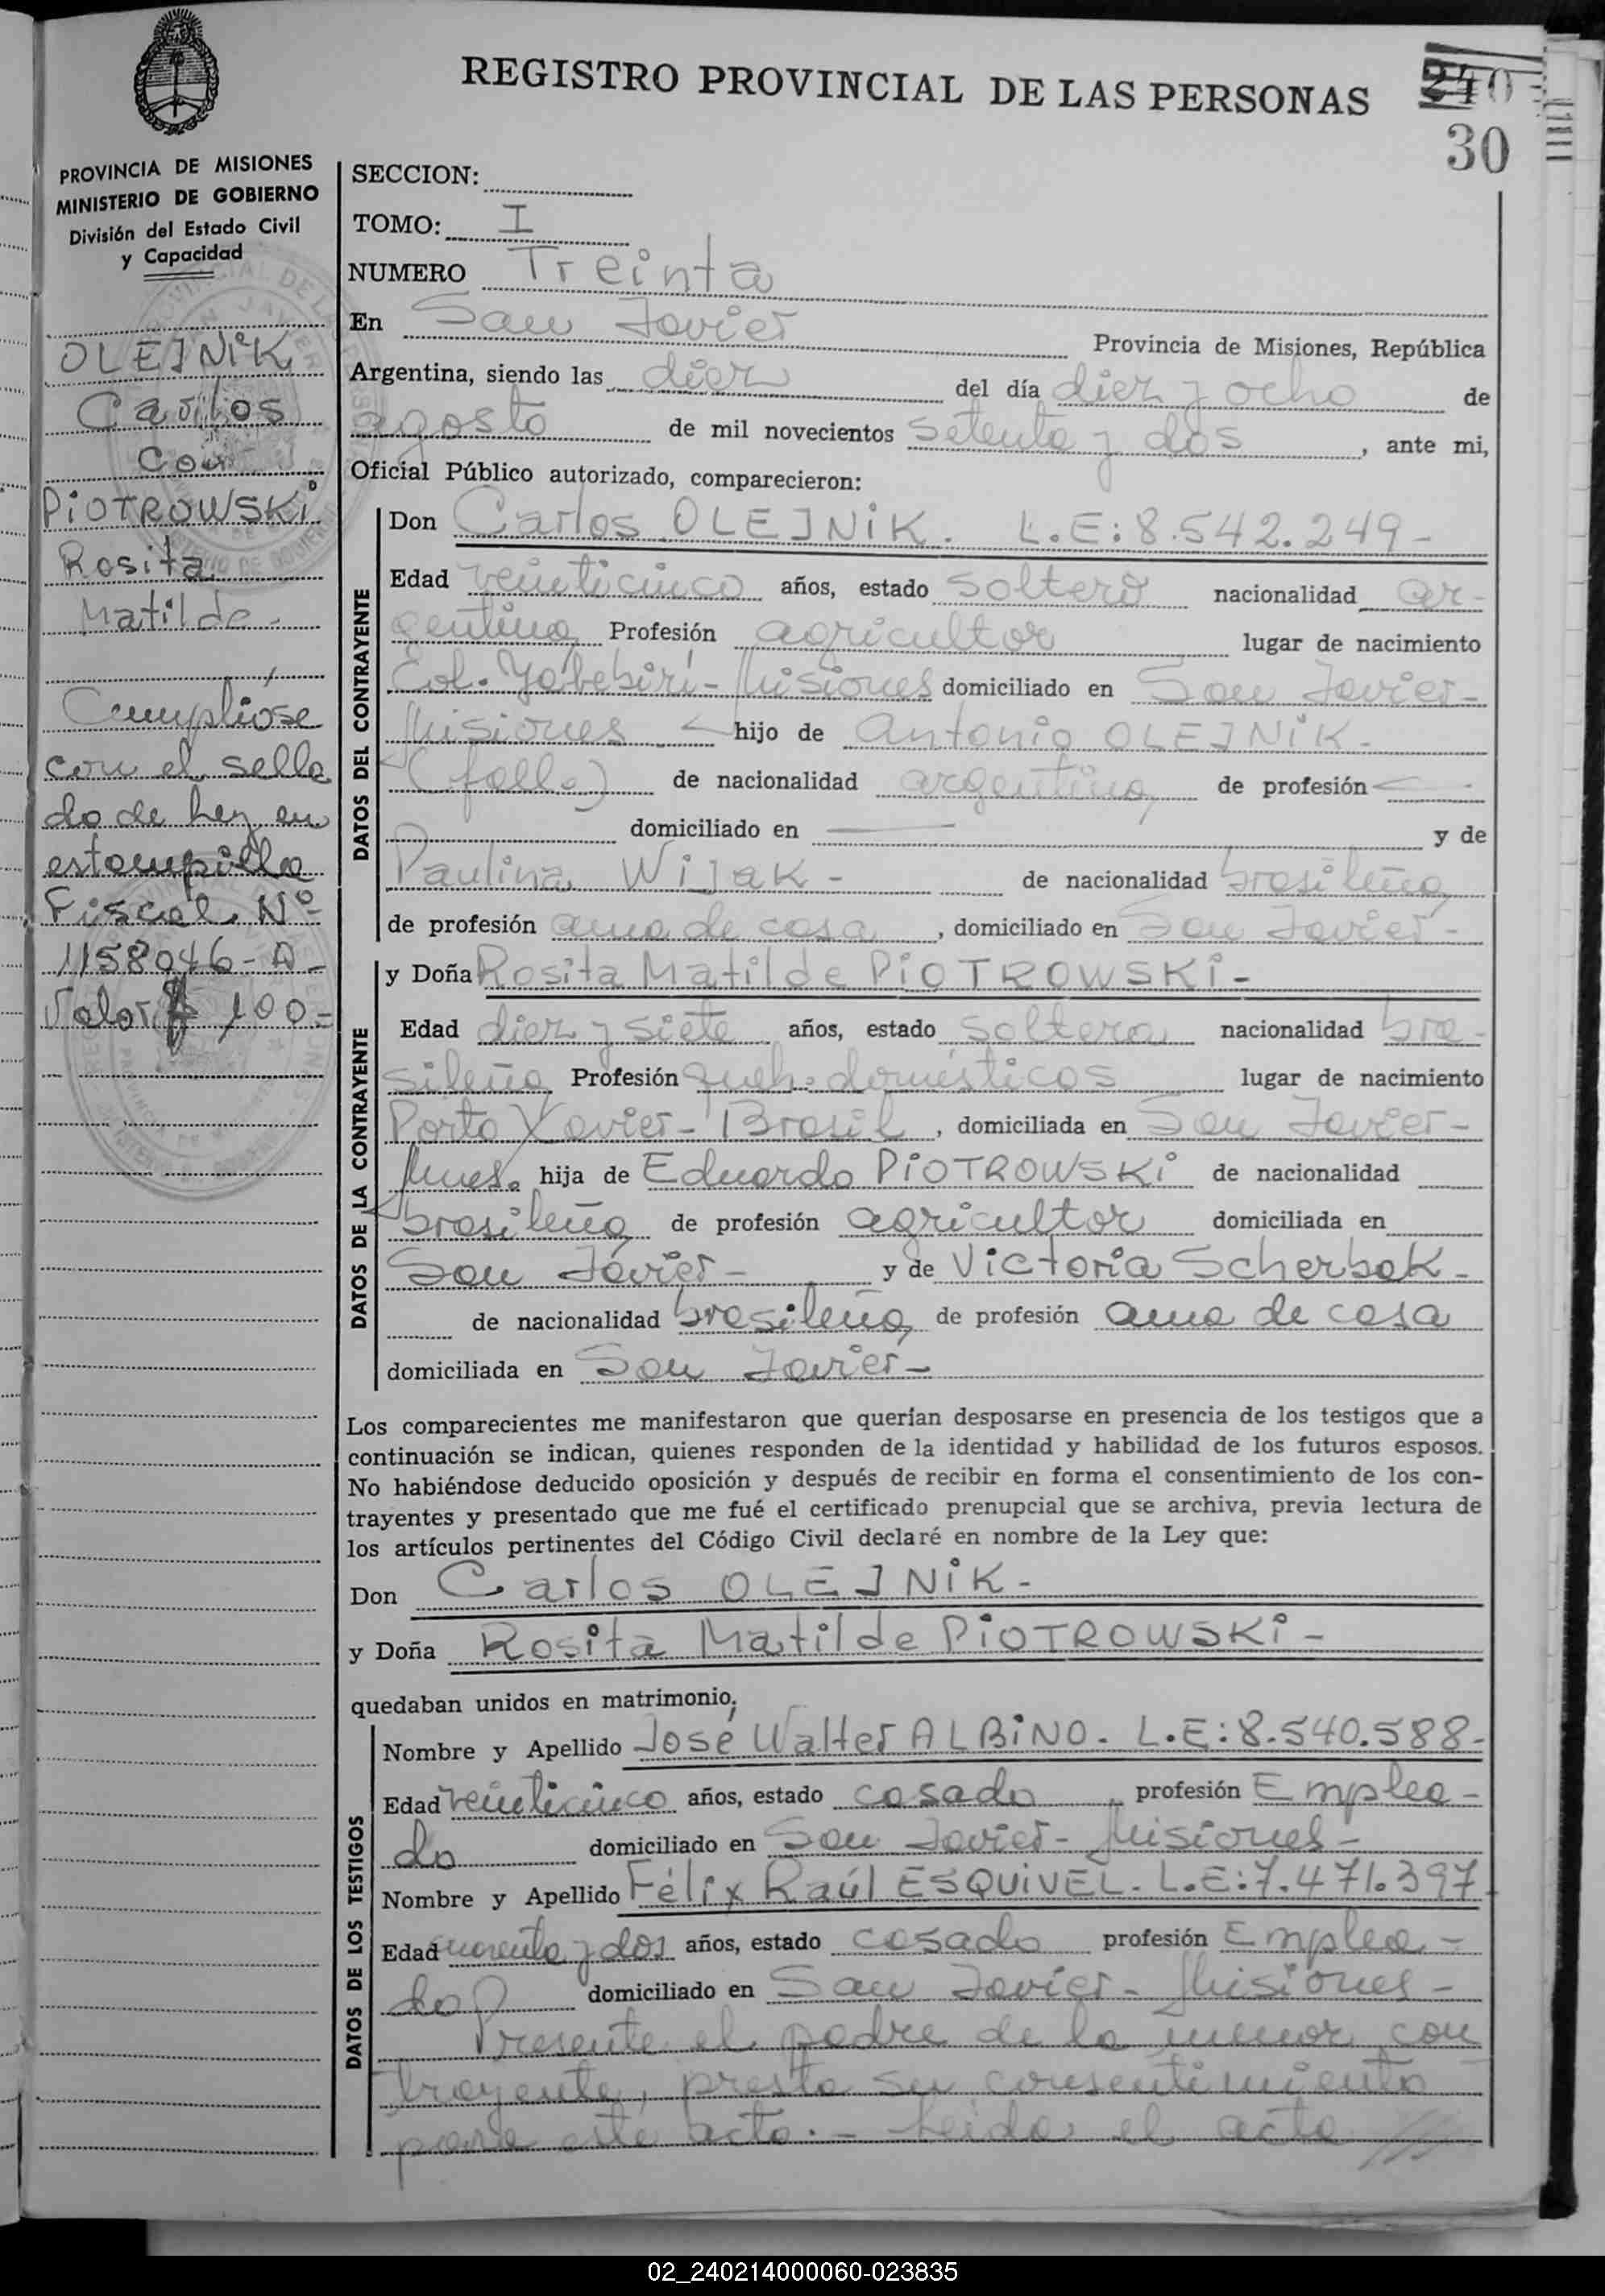 REGISTRO PROVINCIAL DE LAS PERSONAS
240
30
PROVINCIA DE MISIONES
MINISTERIO DE GOBIERNO
División del Estado Civil
y Capacidad
OLEJNiK
Carlos
con
PiOTROWSKi
Rosita
Matilde-
Cumplióse
con el sella
do de ley en
estampilla
Fiscal Nº
1158046-A-
Valor $ 100=
SECCION:
TOMO: I
NUMERO Treinta
En San Javier Provincia de Misiones, República
Argentina, siendo las diez del día diez y ocho de
agosto de mil novecientos setenta y dos, ante mi,
Oficial Público autorizado, comparecieron:
DATOS DEL CONTRAYENTE
Don Carlos OLEJNiK. L.E:8.542.249-
Edad veinticinco años, estado soltero nacionalidad ar-
gentina Profesión agricultor lugar de nacimiento
Col. Yabebirí-Misiones domiciliado en San Javier-
Misiones hijo de Antonio OLEJNiK-
(falle) de nacionalidad argentina de profesión
domiciliado en y de
Paulina WiJak- de nacionalidad brasileña
de profesión ama de casa, domiciliado en San Javier-
DATOS DE LA CONTRAYENTE
y Doña Rosita Matilde PiOTROWSKi-
Edad diez y siete años, estado soltera nacionalidad bra-
sileña Profesión queh. domésticos lugar de nacimiento
Porto Xavier-Brasil, domiciliada en San Javier-
Mnes. hija de Eduardo PiOTROWSKi de nacionalidad
brasileña de profesión agricultor domiciliada en
San Javier- y de Victoria Scherbak-
de nacionalidad brasileña de profesión ama de casa
domiciliada en San Javier-
Los comparecientes me manifestaron que querían desposarse en presencia de los testigos que a
continuación se indican, quienes responden de la identidad y habilidad de los futuros esposos.
No habiéndose deducido oposición y después de recibir en forma el consentimiento de los con-
trayentes y presentado que me fué el certificado prenupcial que se archiva, previa lectura de
los artículos pertinentes del Código Civil declaré en nombre de la Ley que:
Don Carlos OLEJNiK-
y Doña Rosita Matilde PiOTROWSKi-
quedaban unidos en matrimonio;
DATOS DE LOS TESTIGOS
Nombre y Apellido José Walter ALBiNO. L.E:8.540.588-
Edad veinticinco años, estado casado profesión Emplea-
do domiciliado en San Javier-Misiones-
Nombre y Apellido Félix Raúl ESQUiVEL. L.E:7.471.397
Edad cuarenta y dos años, estado casado profesión Emplea-
do domiciliado en San Javier-Misiones-
Presente el padre de la menor con
trayente, presta su consentimiento
para este acto.- Leida el acta
02_240214000060-023835